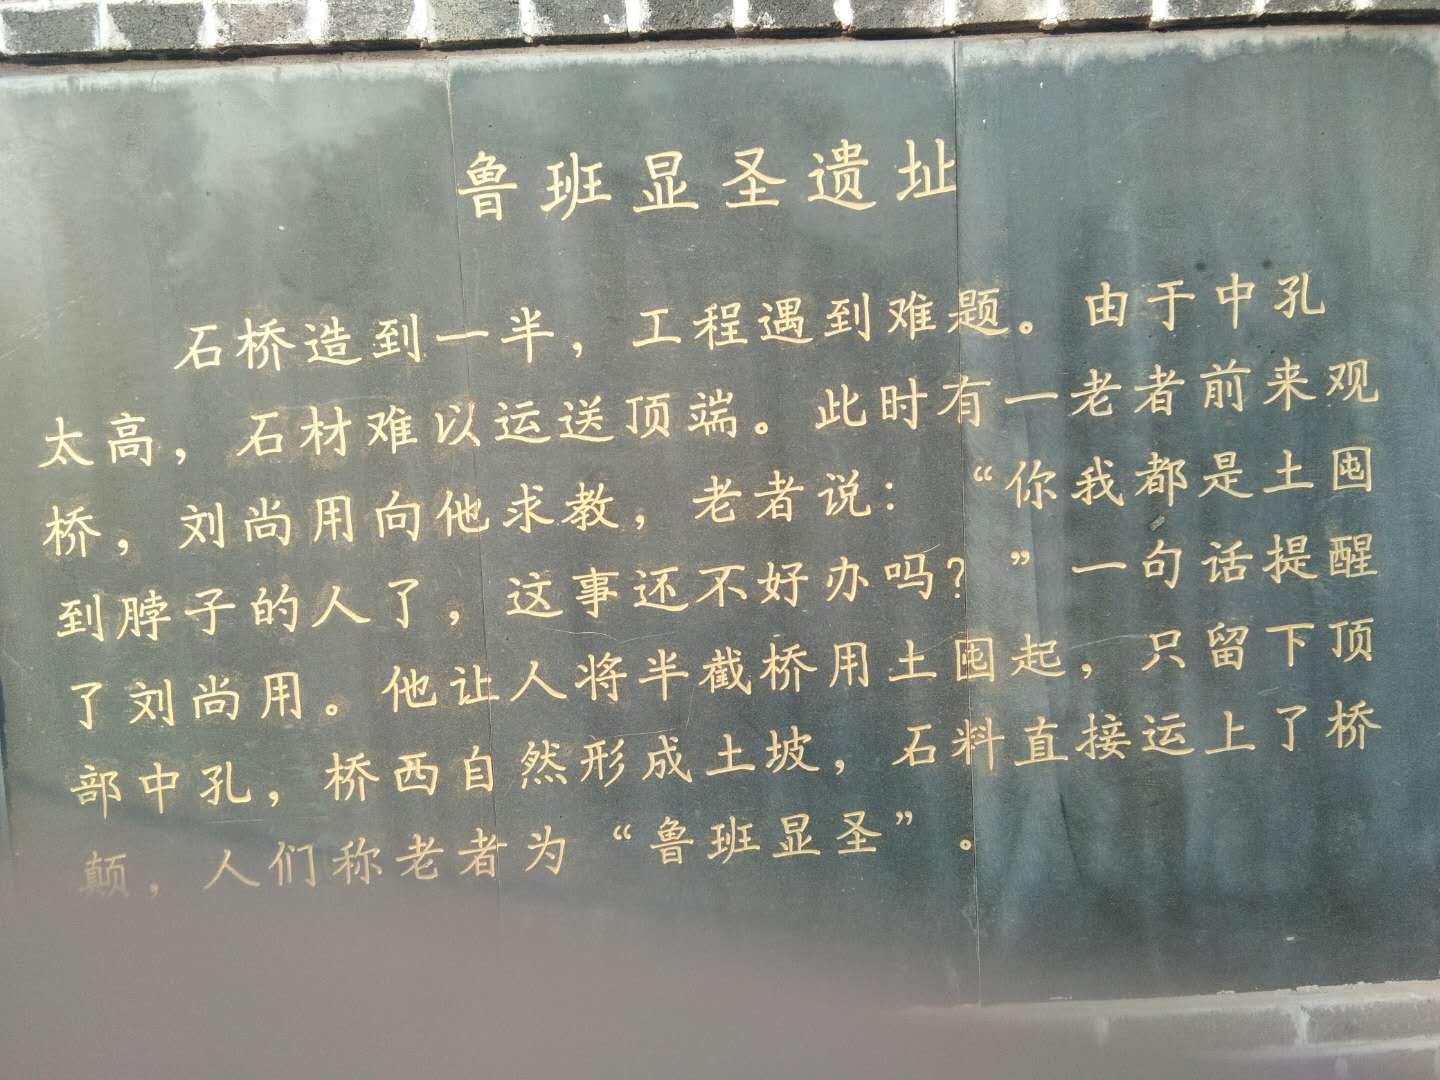 鲁班显圣遗址
石桥造到一半，工程遇到难题。由于中孔
太高，石材难以运送顶端。此时有一老者前来观
桥，刘尚用向他求教，老者说：“你我都是土囤
到脖子的人了，这事还不好办吗？”一句话提醒
了刘尚用。他让人将半截桥用土囤起，只留下顶
部中孔，桥西自然形成土坡，石料直接运上了桥
颠，人们称老者为“鲁班显圣”。